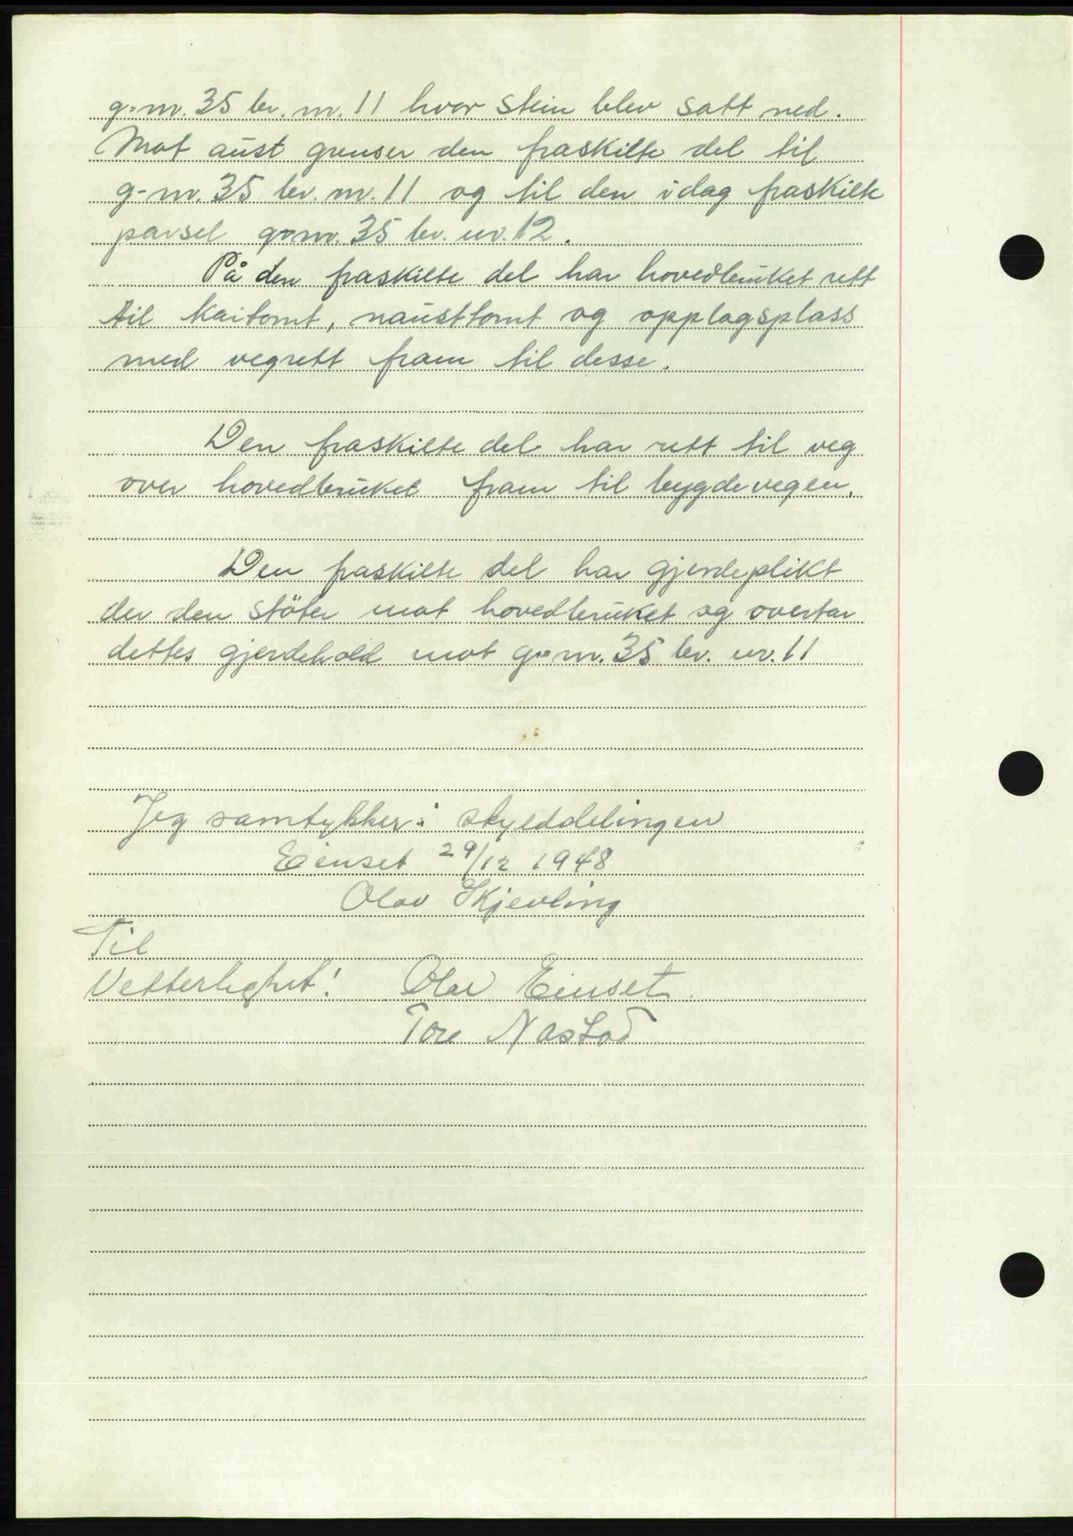 g.nr. 35 br. nr. 11 hvor stein blev satt ned.
Mot aust grenser den fraskilte del til
g.nr. 35 br. nr. 11 og til den idag fraskilte
parsel g.nr. 35 br. nr. 12.
På den fraskilte del har hovedbruket rett
til kaitomt, nausttomt og opplagsplass
med vegrett fram til desse.
Den fraskilte del har rett til veg
over hovedbruket fram til bygdevegen.
Den fraskilte del har gjerdeplikt
der den støter mot hovedbruket og overtar
dettes gjerdehold mot g.nr. 35 br. nr. 11
Jeg samtykker i skylddelingen
Einset 29/12 1948
Olav Skjevling
Til
Vetterlighet! Olav Einset.
Tore